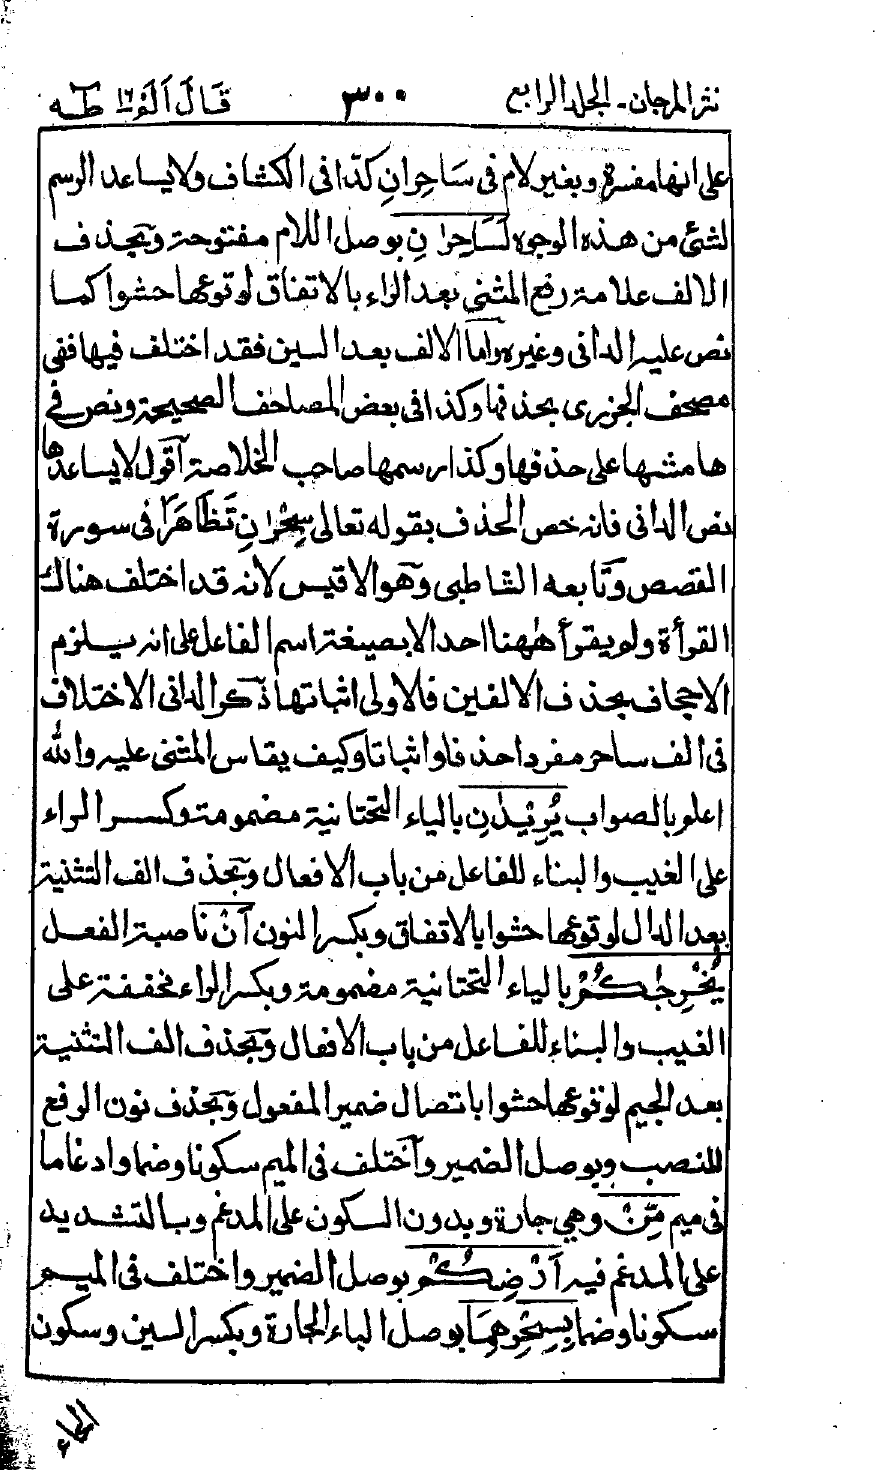 نثر المرجان - الجلد الرابع ٣٠٠ قَالَ اَلَمْ ١٦ طه
على انها مفسرة وبغير لام فى سَاحِرانِ كذا فى الكشاف ولا يساعد الرسم
لشئ من هذه الوجوه لَسٰحِرٰنِ بوصل اللام مفتوحة وبحذف
الالف علامة رفع المثنى بعد الراء بالاتفاق لوقوعها حشوا كما
نص عليه الدانى وغيره واما الالف بعد السين فقد اختلف فيها ففى
مصحف الجزرى بحذفها وكذا فى بعض المصاحف الصحيحة ونص فى
هامشها على حذفها وكذا رسمها صاحب الخلاصة آقول لا يساعدها
نص الدانى فانه خص الحذف بقوله تعالى سِحْرٰنِ تَظَاهَرَا فى سورة
القصص وتابعه الشاطبى وهو الاقيس لانه قد اختلف هناك
القرأة ولم يقرأ هٰهنا احد الا بصيغة اسم الفاعل على انه يلزم
الاجحاف بحذف الالفين فالاولى اثباتها ذكر الدانى الاختلاف
فى الف ساحر مفردا حذفا واثباتا وكيف يقاس المثنى عليه والله
اعلم بالصواب يُرِيْدٰنِ بالياء التحتانية مضمومة وكسر الراء
على الغيب والبناء للفاعل من باب الافعال وبحذف الف التثنية
بعد الدال لوقوعها حشوا بالاتفاق وبكسر النون اَنْ ناصبة الفعل
يُخْرِجٰكُمْ بالياء التحتانية مضمومة وبكسر الراء مخففة على
الغيب والبناء للفاعل من باب الافعال وبحذف الف التثنية
بعد الجيم لوقوعها حشوا باتصال ضمير المفعول وبحذف نون الرفع
للنصب وبوصل الضمير واختلف فى الميم سكونا وضما وادغاما
فى ميم مِّنْ وهى جارة وبدون السكون على المدغم وبالتشديد
على المدغم فيه اَرْضِكُمْ بوصل الضمير واختلف فى الميم
سكونا وضما بِسِحْرِهِمَا بوصل الباء الجارة وبكسر السين وسكون
الحاء